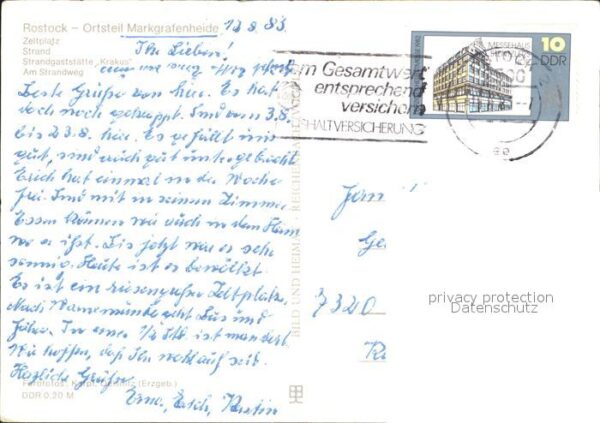 Rostock – Ortsteil Markgrafenheide
Zeltplatz
Strand
Strandgaststätte „Krakus"
Am Strandweg
12.8.83
Ihr Lieben!
Beste Grüße von hier. Es hat
doch noch geklappt. Sind vom 3.8.
bis 23.8. hier. Es gefällt mir
gut, sind auch gut untergebracht
Erich hat einmal in der Woche
frei. Sind mit in seinem Zimmer
Essen können wir auch in dem Heim
wo er ißt. Bis jetzt war es sehr
sonnig. Heute ist es bewölkt.
Es ist ein riesengroßer Zeltplatz.
Nach Warnemünde geht Bus und
Fähre. In einer 1/2 Std. ist man dort
Wir hoffen, daß Ihr wohlauf seid.
Herzliche Grüße
Erna, Erich,
DDR 0,20 M
BILD UND HEIMAT REICHENBACH
MESSEHAUS
10
DDR
Gesamtwert
entsprechend
versichern
HALTVERSICHERUNG
7320
privacy protection
Datenschutz